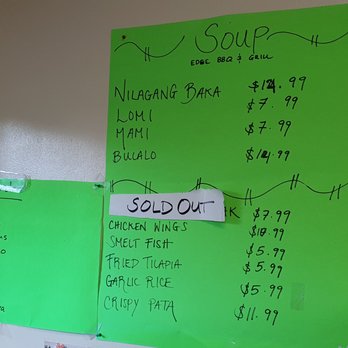 SOUP
EDGE BBQ & GRILL
NILAGANG BAKA $14.99
LOMI $7.99
MAMI $7.99
BULALO $14.99
SOLD OUT AK $7.99
CHICKEN WINGS $10.99
SMELT FISH $5.99
FRIED TILAPIA $5.99
GARLIC RICE $5.99
CRISPY PATA $11.99